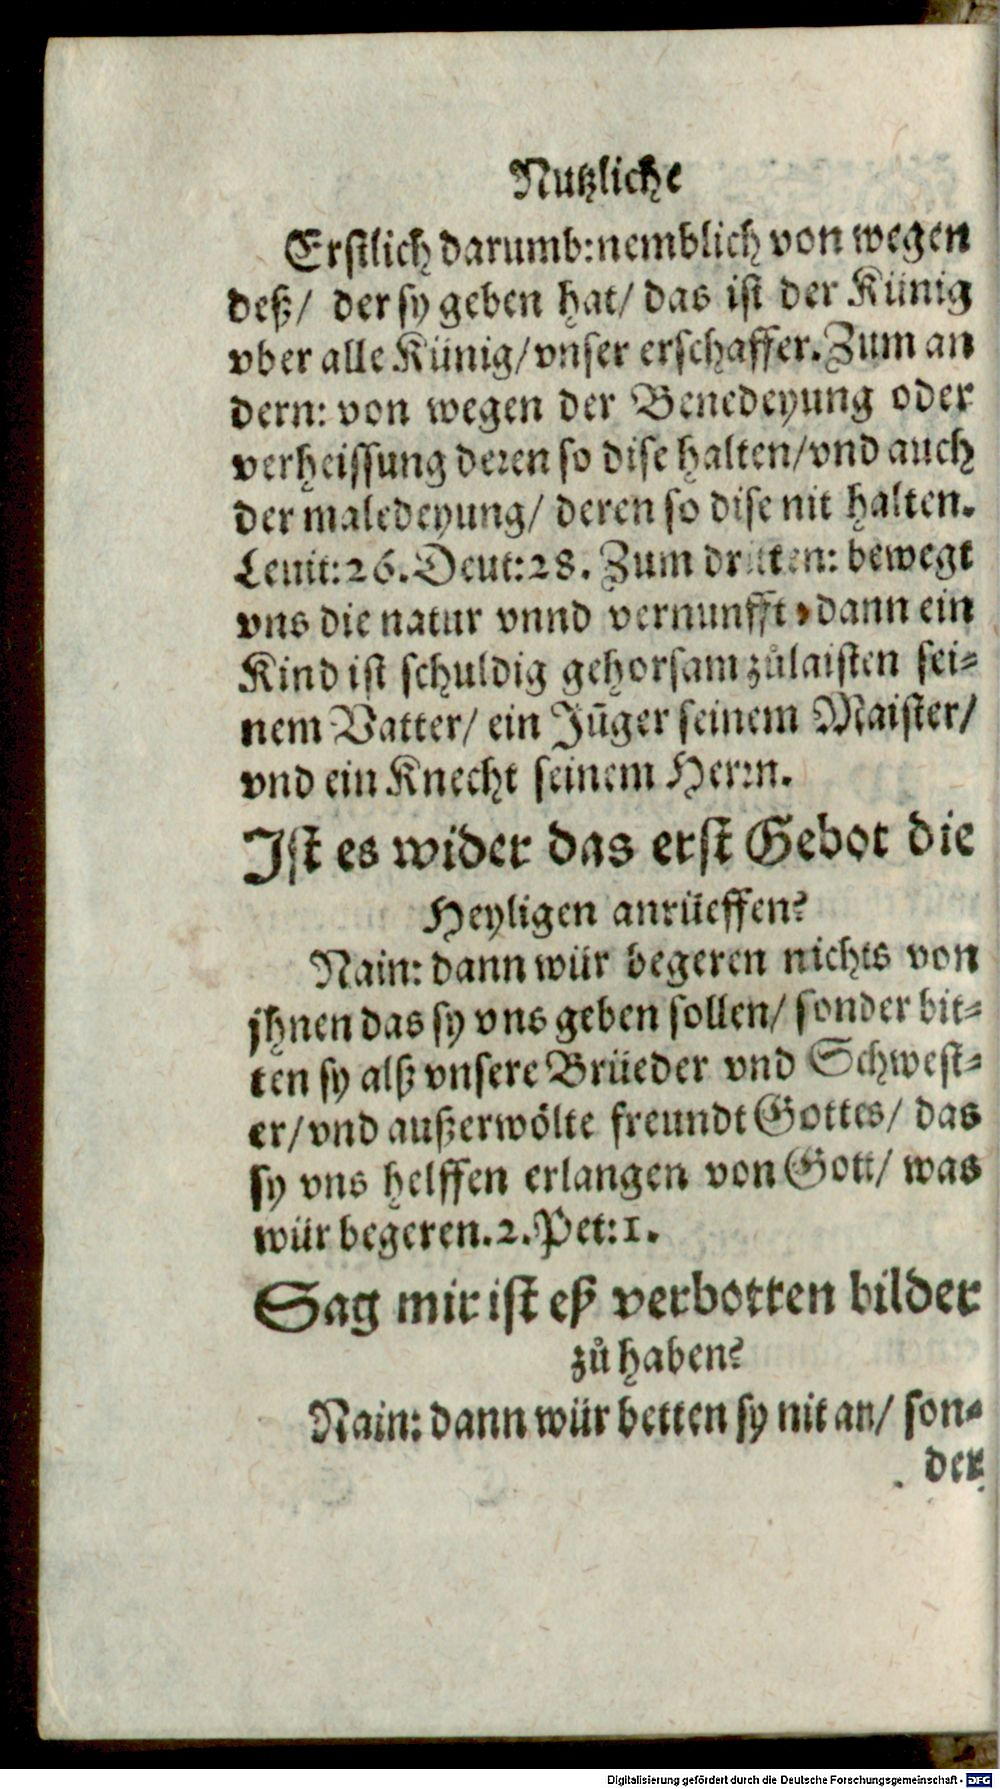 Nutzliche
Erstlich darumb: nemblich von wegen
deß/ der sy geben hat/ das ist der Künig
vber alle Künig/ vnser erschaffer. Zum an
dern: von wegen der Benedeyung oder
verheissung deren so dise halten/ vnd auch
der maledeyung/ deren so dise nit halten.
Leuit: 26. Deut: 28. Zum dritten: bewegt
vns die natur vnnd vernunfft, dann ein
Kind ist schuldig gehorsam zůlaisten sei=
nem Vatter/ ein Jūger seinem Maister/
vnd ein Knecht seinem Herrn.
Ist es wider das erst Gebot die
Heyligen anrüeffen?
Nain: dann wür begeren nichts von
jhnen das sy vns geben sollen/ sonder bit=
ten sy alß vnsere Brüeder vnd Schwest=
er/ vnd außerwölte freundt Gottes/ das
sy vns helffen erlangen von Gott/ was
wür begeren. 2. Pet: 1.
Sag mir ist eß verbotten bilder
zů haben?
Nain: dann wür betten sy nit an/ son=
der
Digitalisierung gefördert durch die Deutsche Forschungsgemeinschaft - DFG